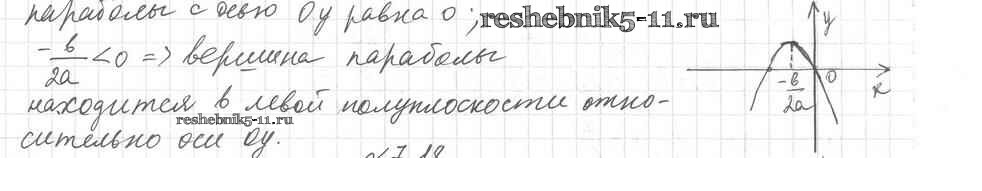 параболы с осью Oy равна 0; reshebnik5-11.ru
-b/2a <0 => вершина параболы
находится в левой полуплоскости отно-
reshebnik5-11.ru
сительно оси Oy.
y
0
x
-b/2a